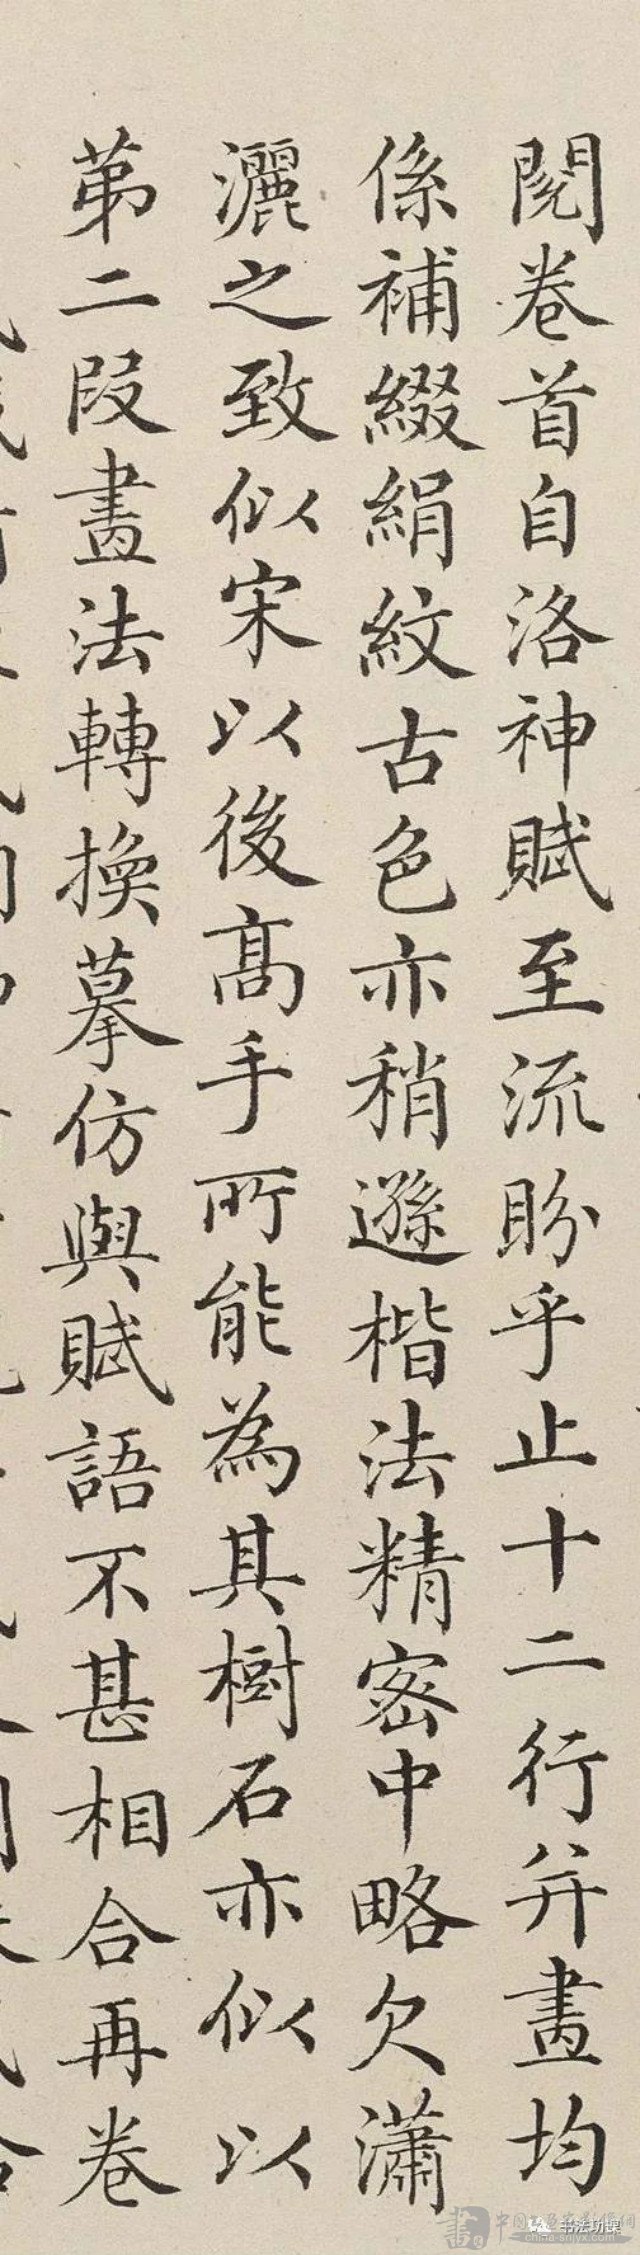 閱卷首自洛神賦至流盼乎止十二行并畫均
係補綴絹紋古色亦稍遜楷法精密中略欠瀟
灑之致似宋以後高手所能為其樹石亦似以
第二段畫法轉換摹仿與賦語不甚相合再卷
書法功課
china-shjyx.com